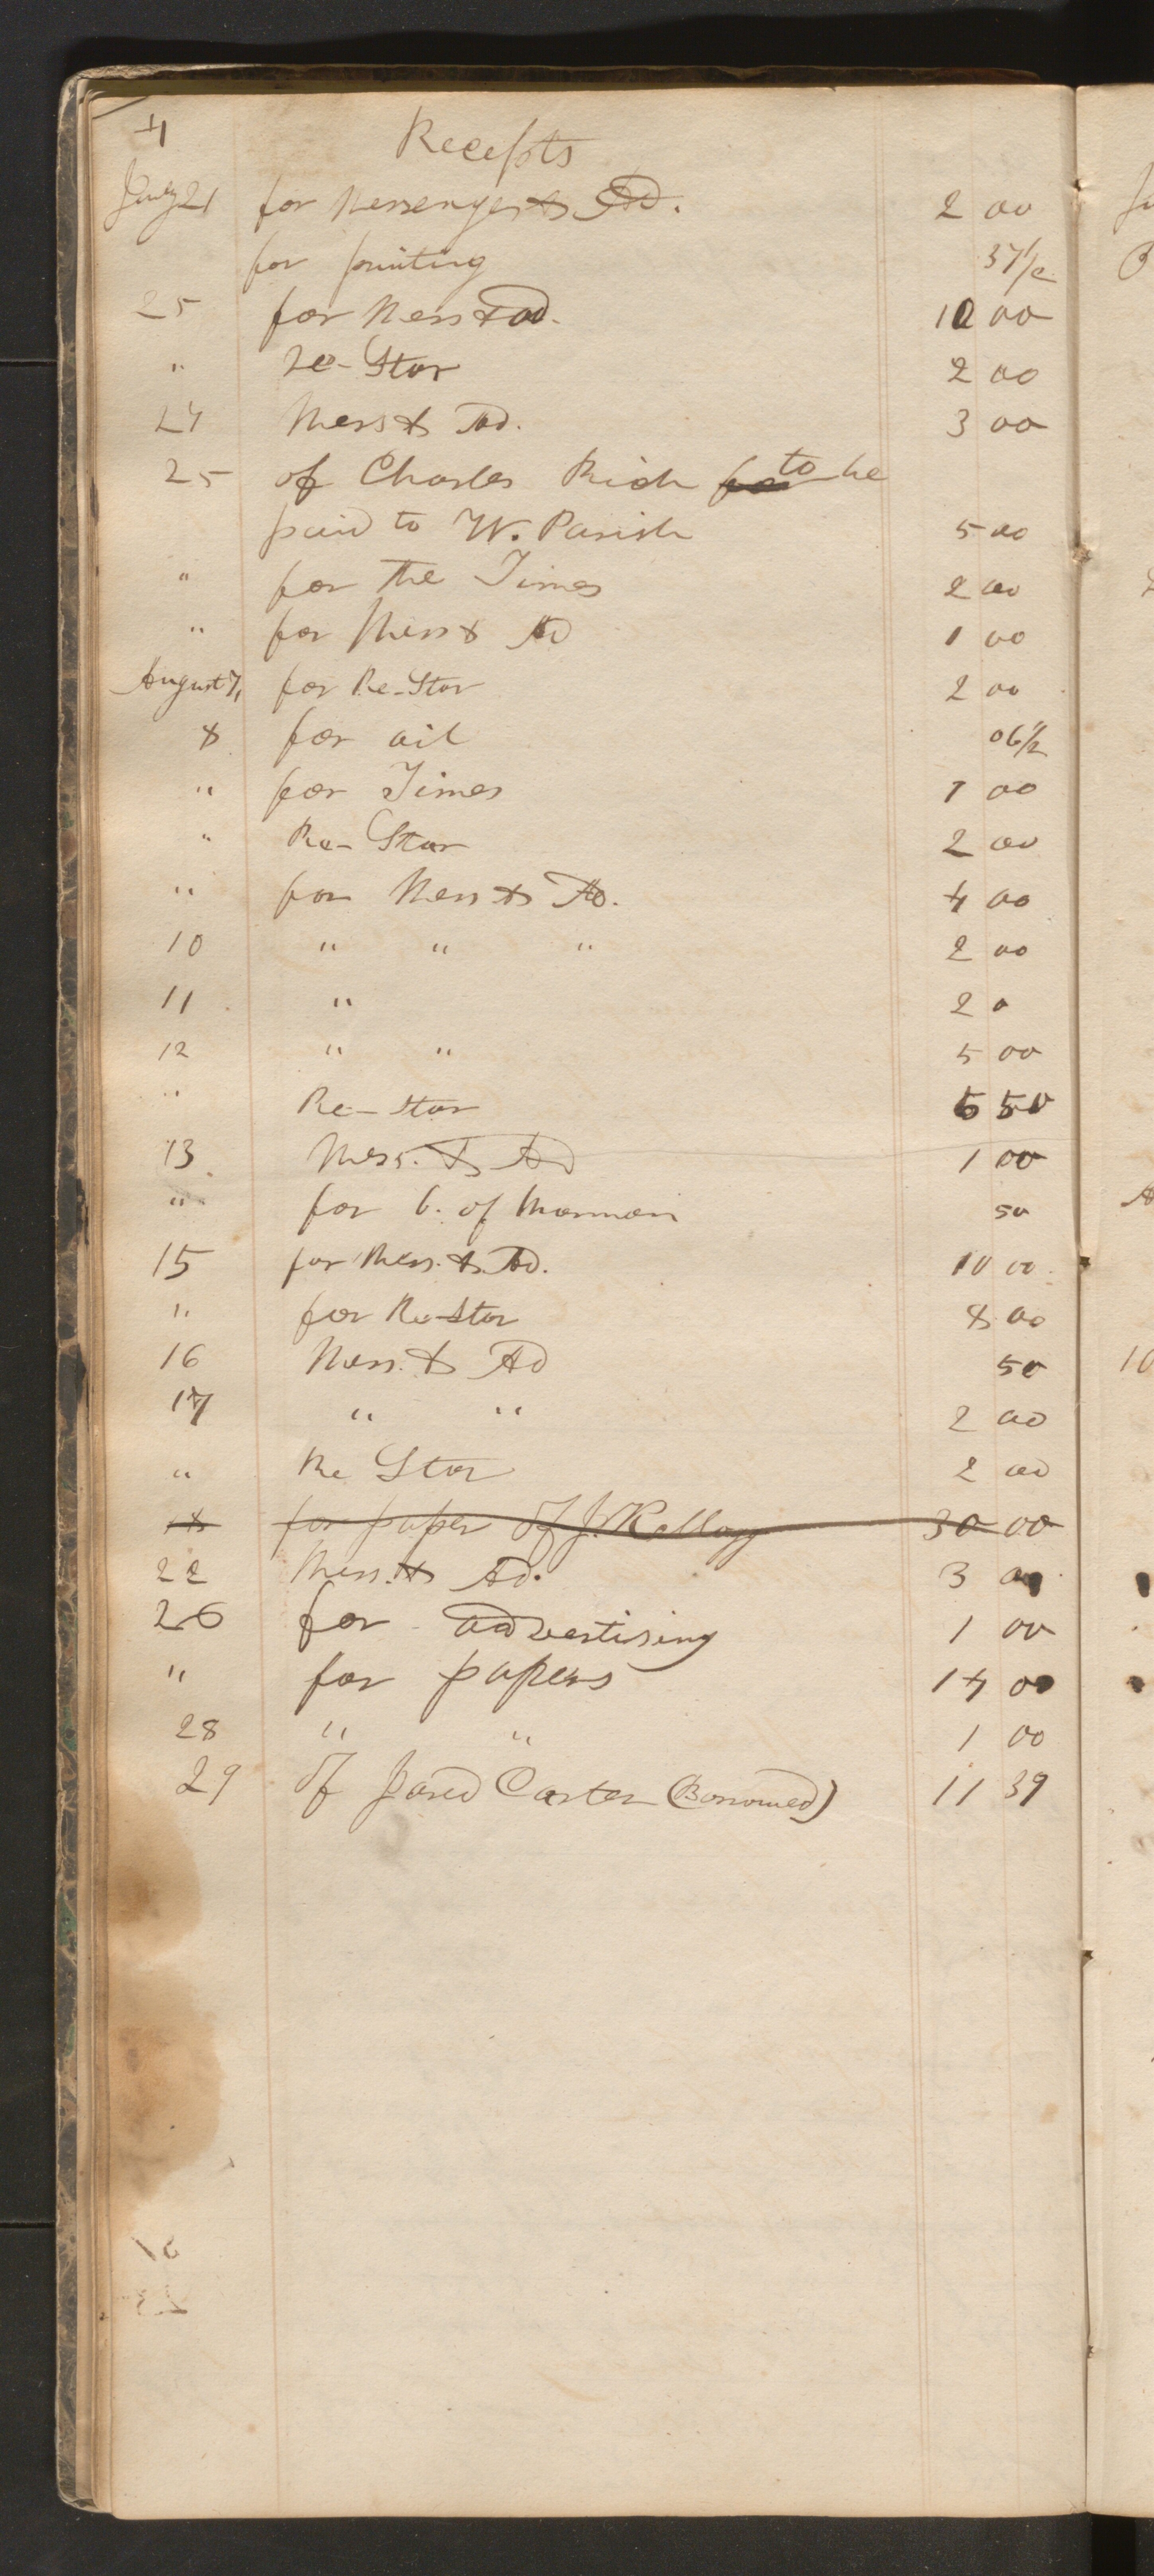 4 Receipts
July 21 for Messenger & Ad. 2 00
for printing 37 1/2
25 for Mess & Ad. 10 00
" Re-Star 2 00
27 Mess & Ad. 3 00
25 of Charles Rich to be
paid to W. Parish 5 00
" for the Times 2 00
" for Mess & Ad 1 00
August 7, for Re-Star 2 00
8 for oil 06 1/2
" for Times 1 00
" Re-Star 2 00
" for Mess & Ad. 4 00
10 " " " 2 00
11 " 2 0
12 " " 5 00
" Re-Star 6 50
13 Mess. & Ad 1 00
" for b. of Mormon 50
15 for Mess. & Ad. 10 00
" for Re-Star 8 00
16 Mess. & Ad 50
17 " " 2 00
" Re Star 2 00
for paper of J. Kellogg 30 00
22 Mess. & Ad. 3 00
26 for advertising 1 00
" for papers 14 00
28 " " 1 00
29 of Jared Carter (Borrowed) 11 39